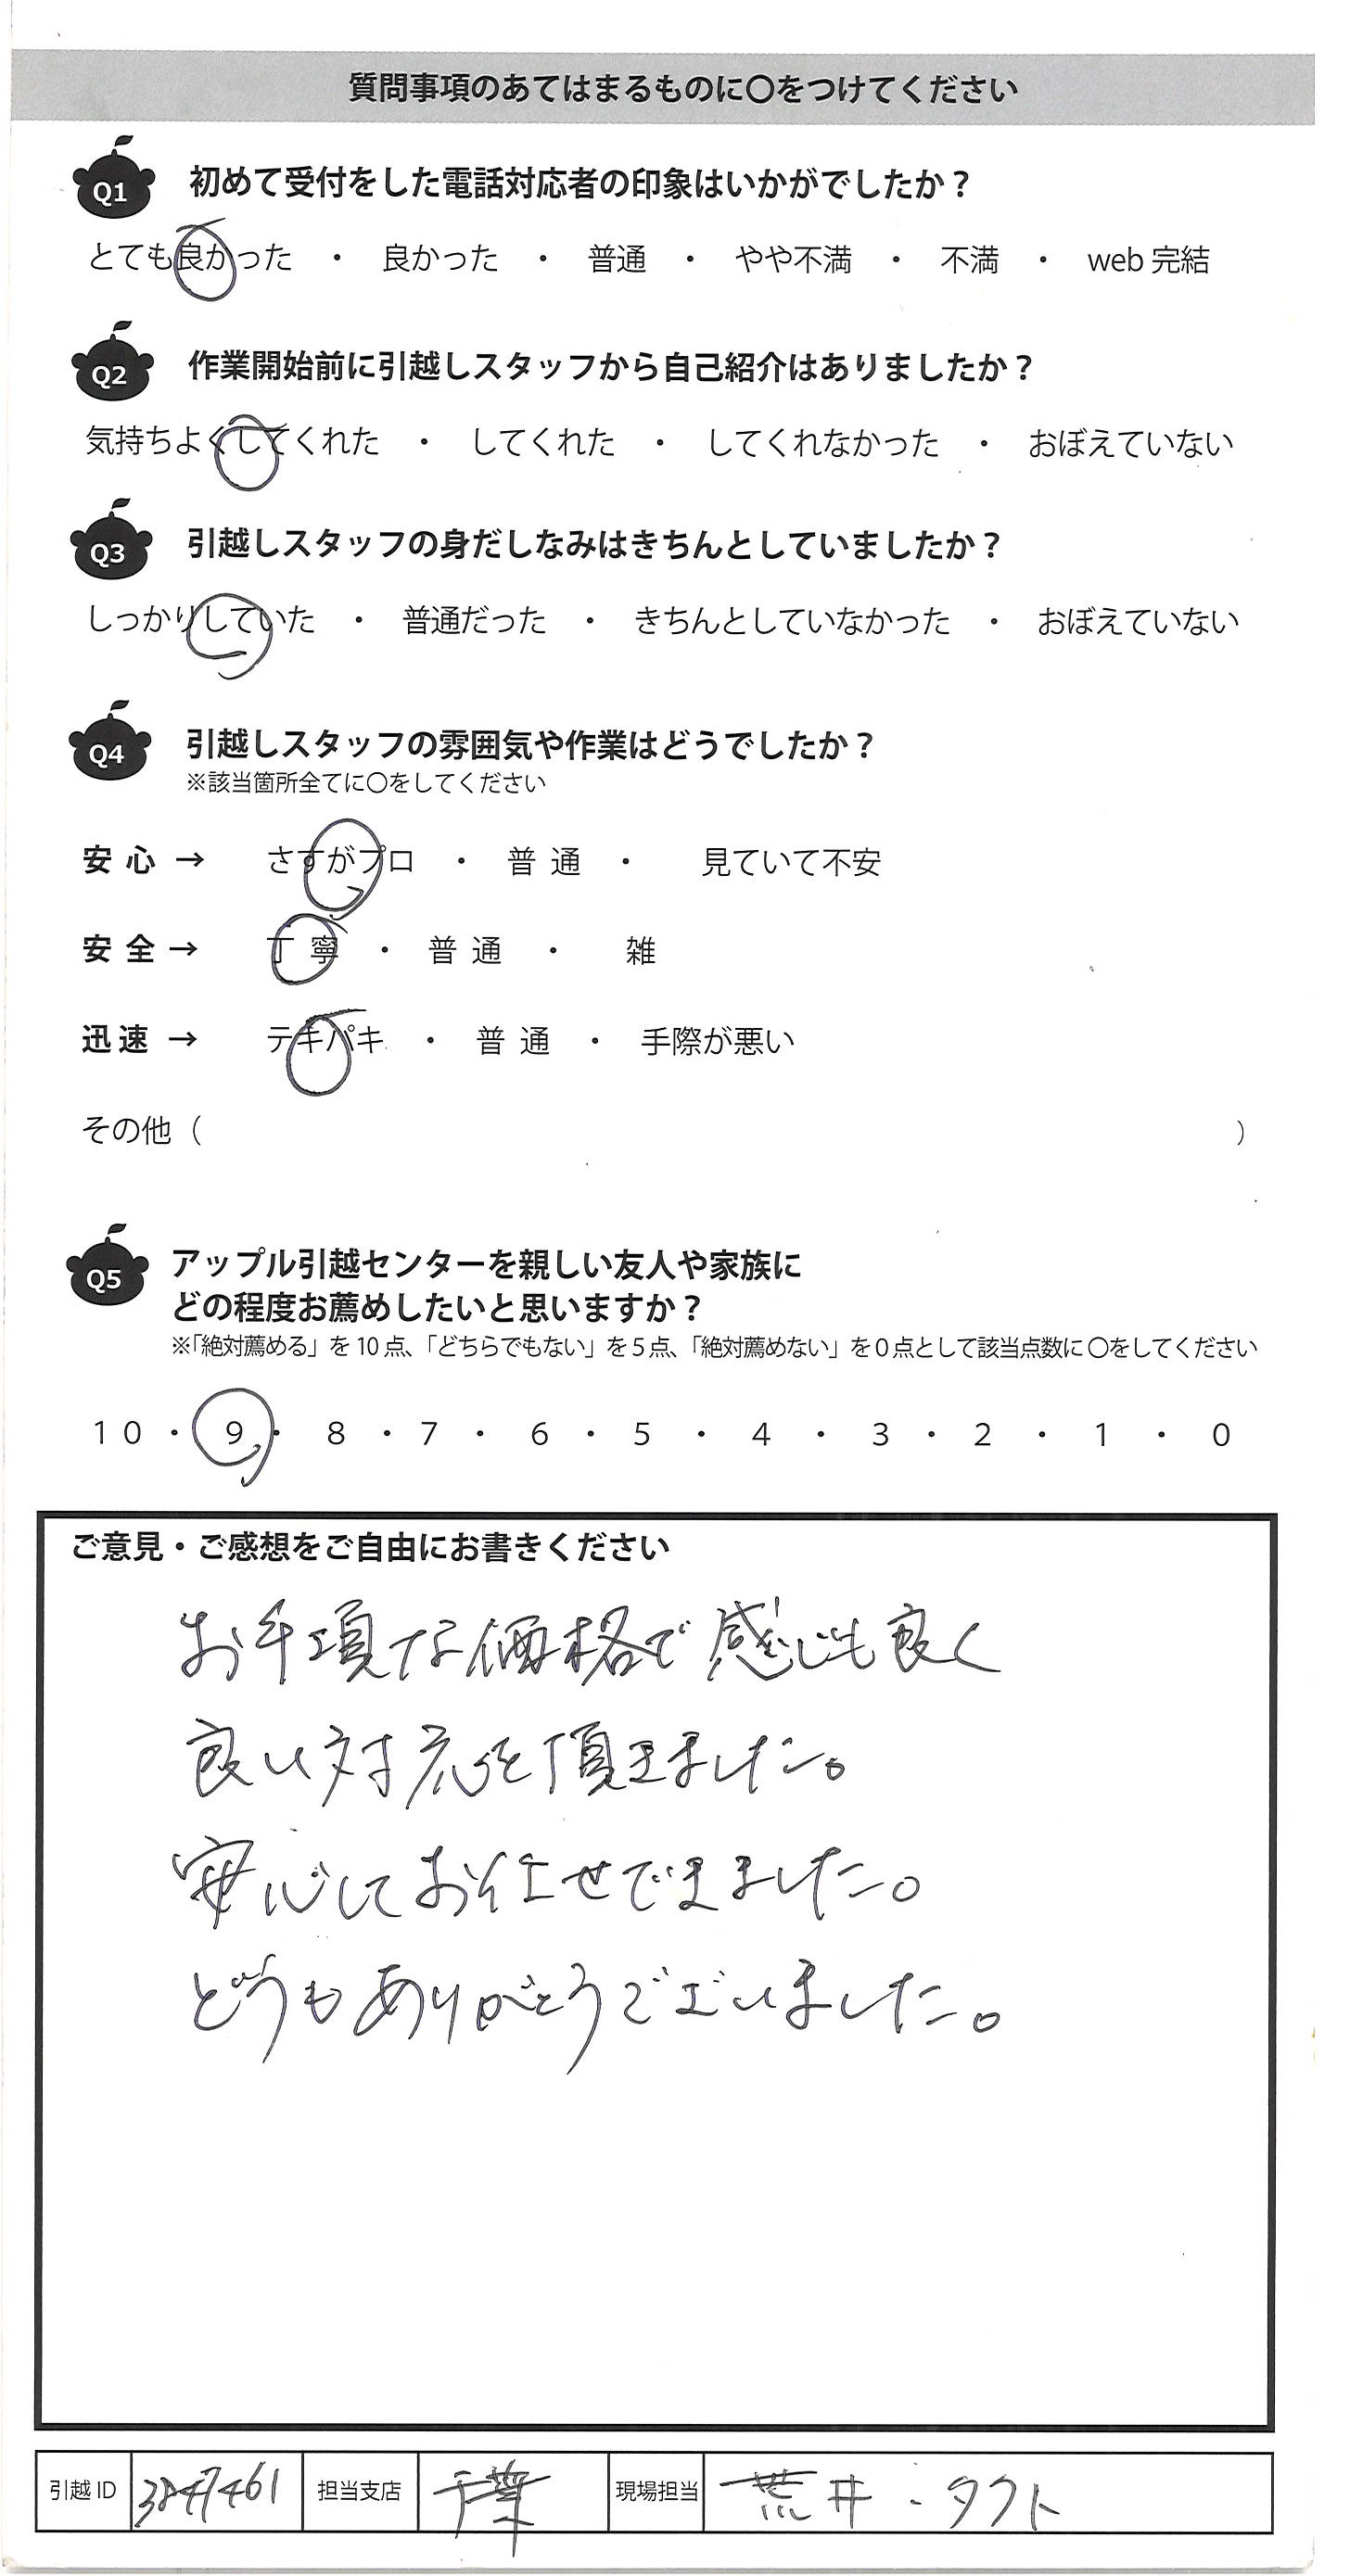 質問事項のあてはまるものに〇をつけてください
Q1 初めて受付をした電話対応者の印象はいかがでしたか？
とても良かった ・ 良かった ・ 普通 ・ やや不満 ・ 不満 ・ web 完結
Q2 作業開始前に引越しスタッフから自己紹介はありましたか？
気持ちよくしてくれた ・ してくれた ・ してくれなかった ・ おぼえていない
Q3 引越しスタッフの身だしなみはきちんとしていましたか？
しっかりしていた ・ 普通だった ・ きちんとしていなかった ・ おぼえていない
Q4 引越しスタッフの雰囲気や作業はどうでしたか？
※該当箇所全てに〇をしてください
安心 → さすがプロ ・ 普通 ・ 見ていて不安
安全 → 丁寧 ・ 普通 ・ 雑
迅速 → テキパキ ・ 普通 ・ 手際が悪い
その他（ ）
Q5 アップル引越センターを親しい友人や家族に
どの程度お薦めしたいと思いますか？
※「絶対薦める」を 10 点、「どちらでもない」を 5 点、「絶対薦めない」を 0 点として該当点数に 〇をしてください
10 ・ 9 ・ 8 ・ 7 ・ 6 ・ 5 ・ 4 ・ 3 ・ 2 ・ 1 ・ 0
ご意見・ご感想をご自由にお書きください
お手頃な価格で感じも良く
良い対応を頂きました。
安心してお任せできました。
どうもありがとうございました。
引越 ID 3847461 担当支店 千葉 現場担当 荒井・タクト